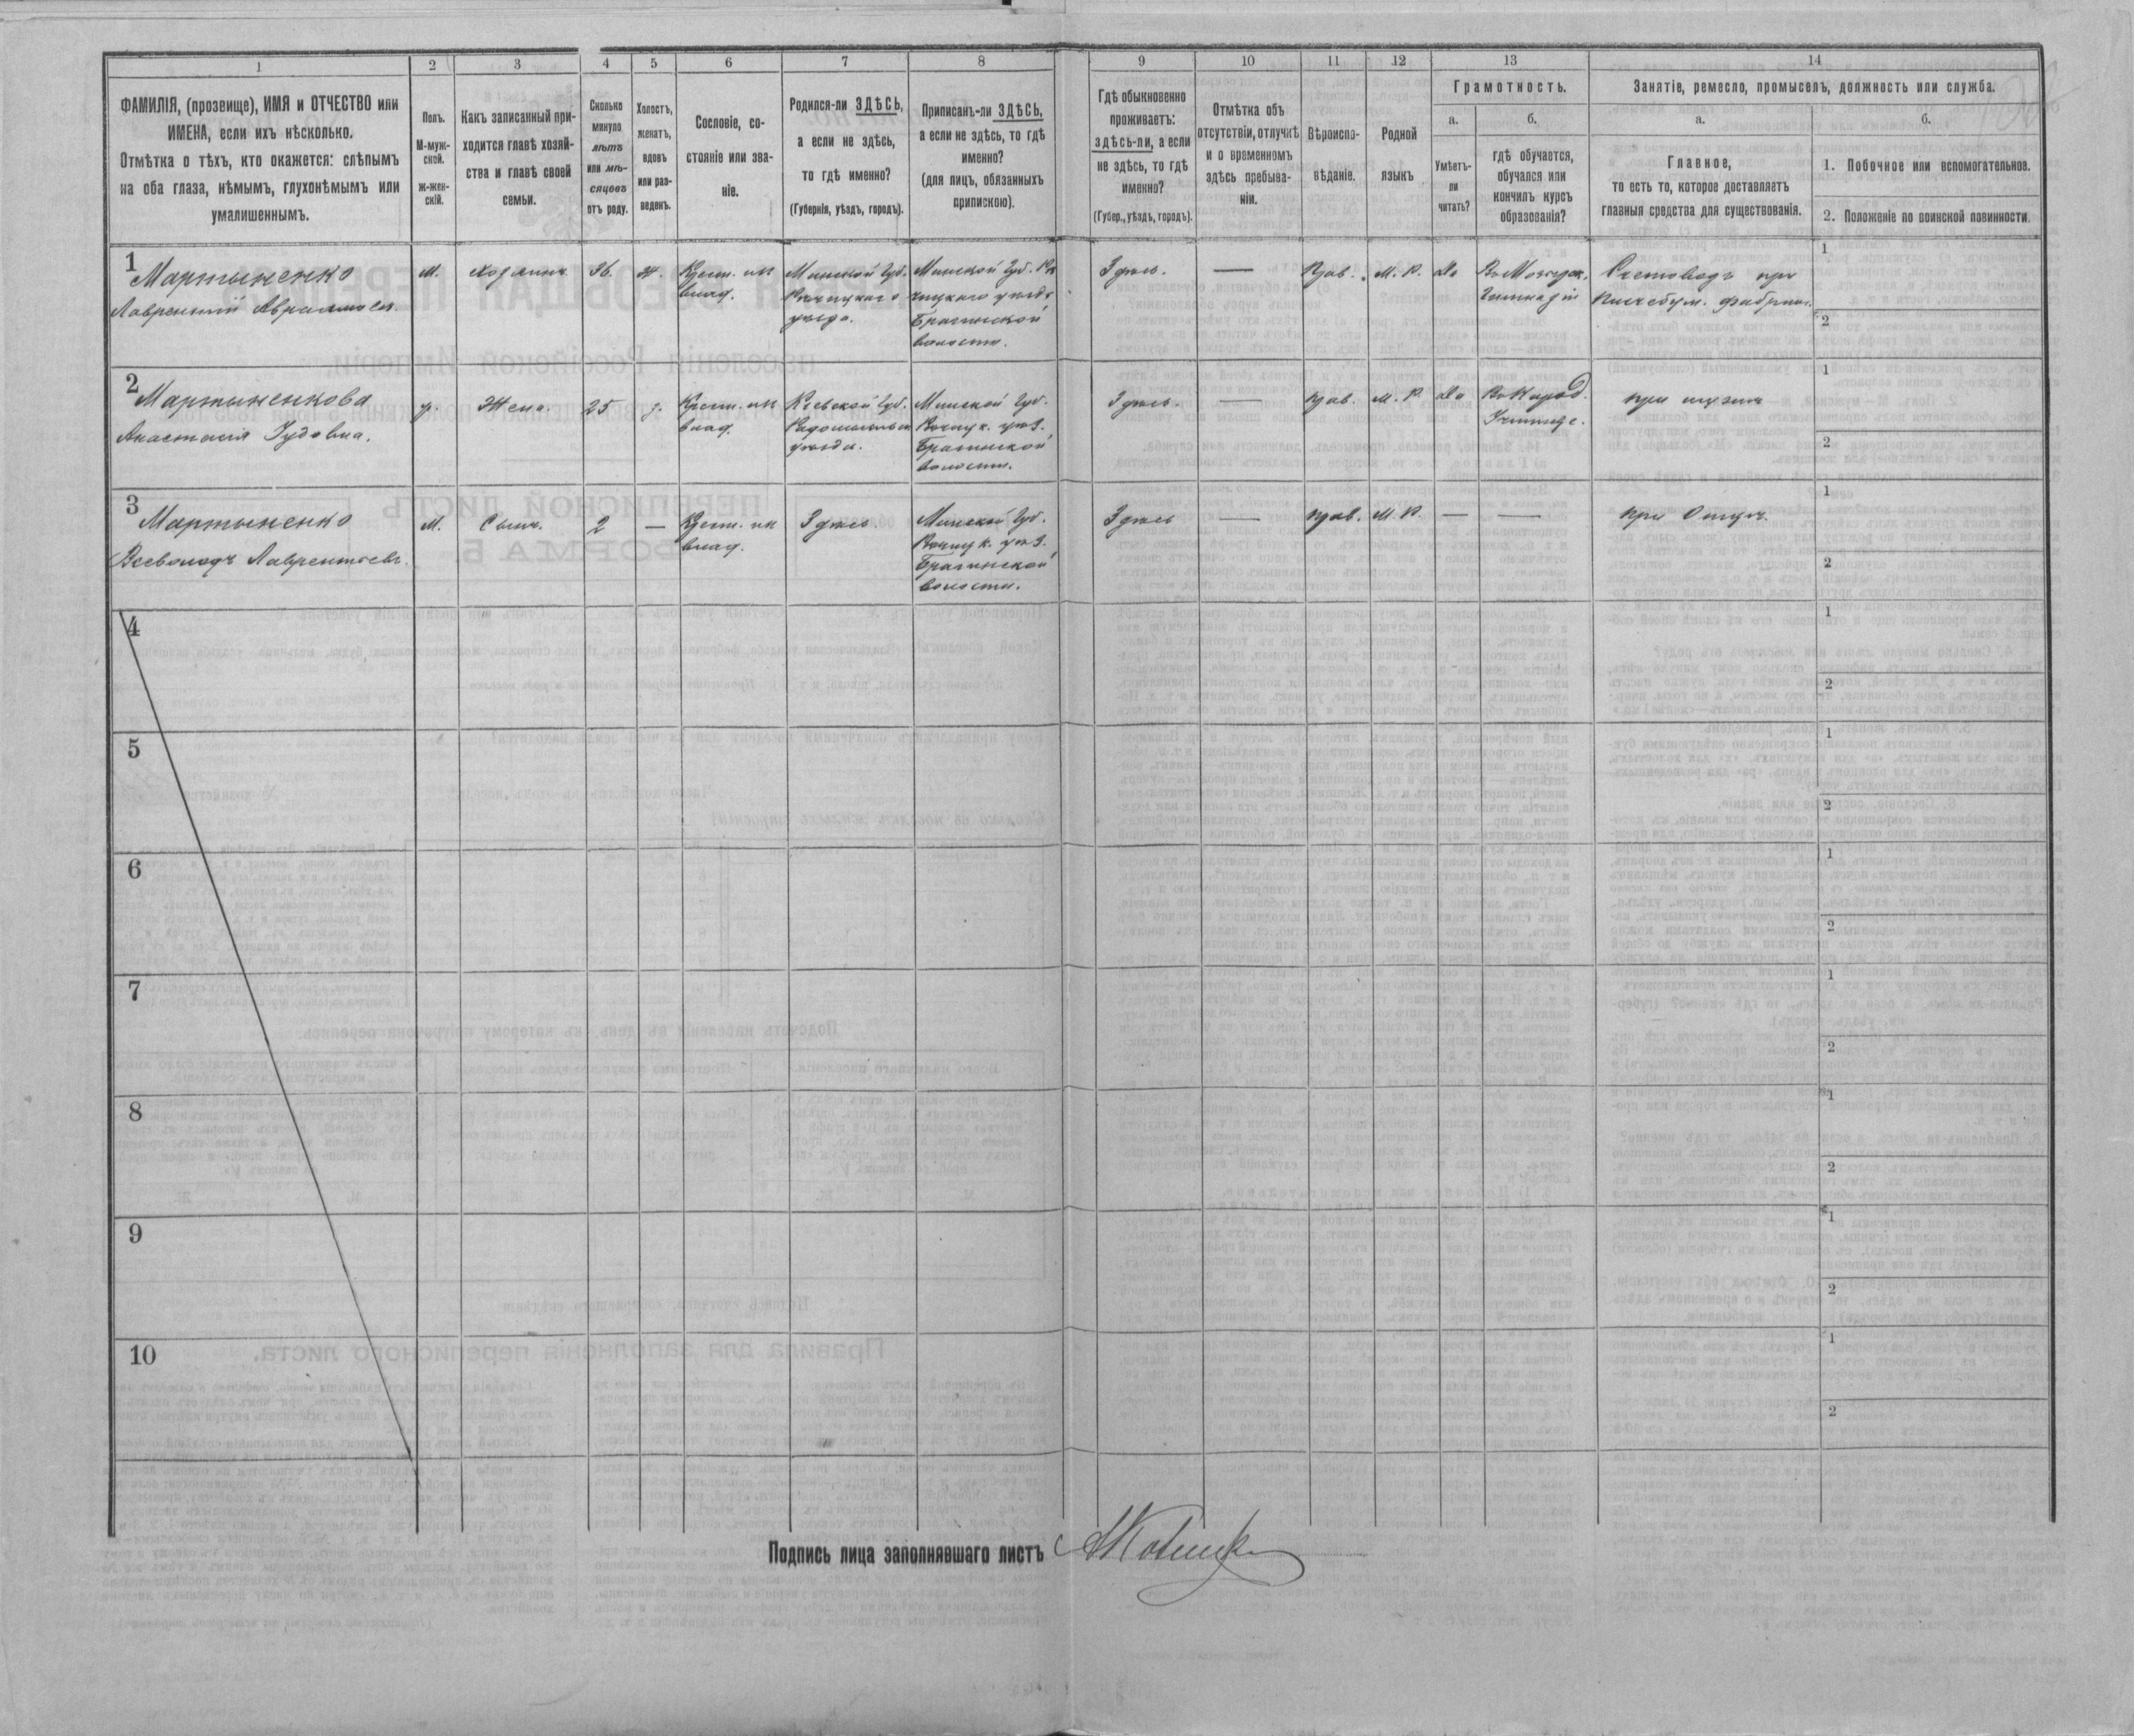 1
2
3
4
5
6
7
8
9
10
11
12
13
14
ФАМИЛІЯ, (прозвище), ИМЯ и ОТЧЕСТВО или
ИМЕНА, если ихъ нѣсколько.
Отмѣтка о тѣхъ, кто окажется: слѣпымъ
на оба глаза, нѣмымъ, глухонѣмымъ или
умалишеннымъ.
Полъ.
М-муж-
ской.
ж-жен-
скій.
Какъ записанный при-
ходится главѣ хозяй-
ства и главѣ своей
семьи.
Сколько
минуло
лѣтъ
или мѣ-
сяцовъ
отъ роду.
Холостъ,
женатъ,
вдовъ
или раз-
веденъ.
Сословіе, со-
стояніе или зва-
ніе.
Родился-ли ЗДѢСЬ,
а если не здѣсь,
то гдѣ именно?
(Губернія, уѣздъ, городъ).
Приписанъ-ли ЗДѢСЬ,
а если не здѣсь, то гдѣ
именно?
(для лицъ, обязанныхъ
припискою).
Гдѣ обыкновенно
проживаетъ:
здѣсь-ли, а если
не здѣсь, то гдѣ
именно?
(Губер., уѣздъ, городъ).
Отмѣтка объ
отсутствіи, отлучкѣ
и о временномъ
здѣсь пребыва-
ніи.
Вѣроиспо-
вѣданіе.
Родной
языкъ
Грамотность.
а.
Умѣетъ-
ли
читать?
б.
гдѣ обучается,
обучался или
кончилъ курсъ
образованія?
Занятіе, ремесло, промыселъ, должность или служба.
а.
Главное,
то есть то, которое доставляетъ
главныя средства для существованія.
б.
1. Побочное или вспомогательное.
2. Положеніе по воинской повинности.
1
Мартыненко
Лаврентій
М.
хозяинъ
36.
ж.
Крест. из
влад.
Минской Губ.
Рѣчицкаго
уѣзда.
Минской Губ. Рѣ
чицкаго уѣзда
Брагинской
волости.
Здѣсь.
—
Прав.
М. Р.
Да
Гимназіи
Счетоводъ при
Писчебум. фабрик.
1
2
2
Мартыненкова
Анастасія Іудовна.
Жена.
25
з.
Крест. из
влад.
Кіевской Губ.
уѣзда.
Минской Губ.
Рѣчицк. уѣз.
Брагинской
волости.
Здѣсь.
—
Прав.
М. Р.
Да
Училище.
при мужѣ
1
2
3
Мартыненко
Всеволодъ Лаврентьевъ.
М.
Сынъ.
2
—
Крест. из
влад.
Здѣсь.
Минской Губ.
Рѣчицк. уѣз.
Брагинской
волости.
Здѣсь
—
прав.
М. Р.
—
—
при Отцѣ.
1
2
4
1
2
5
1
2
6
1
2
7
1
2
8
1
2
9
1
2
10
1
2
Подпись лица заполнявшаго листъ